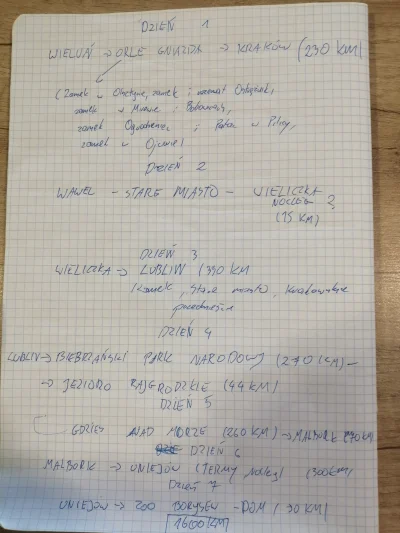 DZIEŃ 1
WIELUŃ → ORLE GNIAZDA → KRAKÓW (230 KM)
(Zamek w Olsztynie, zamek i rezerwat Ostrężnik,
zamek w Mirowie i Bobolicach,
zamek Ogrodzieniec i Pałac w Pilicy,
zamek w Ojcowie)
DZIEŃ 2
WAWEL - STARE MIASTO - WIELICZKA
NOCLEG 2
(15 KM)
DZIEŃ 3
WIELICZKA → LUBLIN (330 KM
(Zamek, Stare miasto, Krakowskie
przedmieście
DZIEŃ 4
LUBLIN → BIEBRZAŃSKI PARK NARODOWY (270 KM) -
→ JEZIORO RAJGRODZKIE (44 KM)
DZIEŃ 5
GDZIEŚ NAD MORZE (260 KM) → MALBORK (90 KM
DZIEŃ 6
MALBORK → UNIEJÓW (TERMY nocleg) (300 KM)
DZIEŃ 7
UNIEJÓW → ZOO BORYSEW - DOM (90 KM)
1600 KM